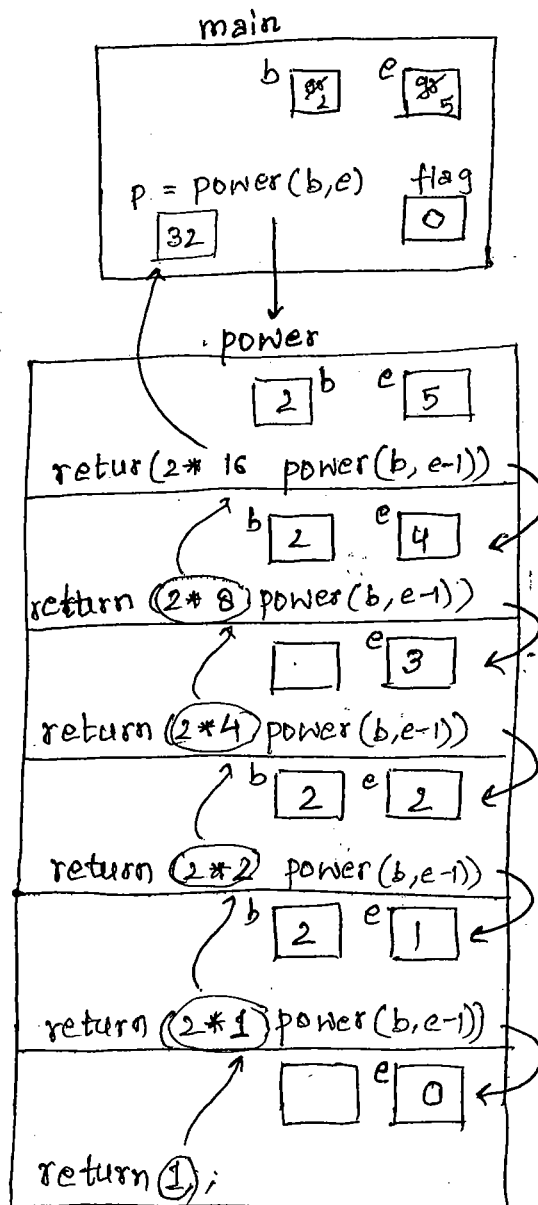 main
b e
gr 2 gr 5
p = power(b,e) flag
32 0
power
2 b e 5
retur(2* 16 power(b, e-1))
b 2 e 4
return (2* 8) power(b, e-1))
e 3
return (2*4) power(b,e-1))
b 2 e 2
return (2*2 power(b,e-1))
b 2 e 1
return (2*1) power(b,e-1))
e 0
return 1;